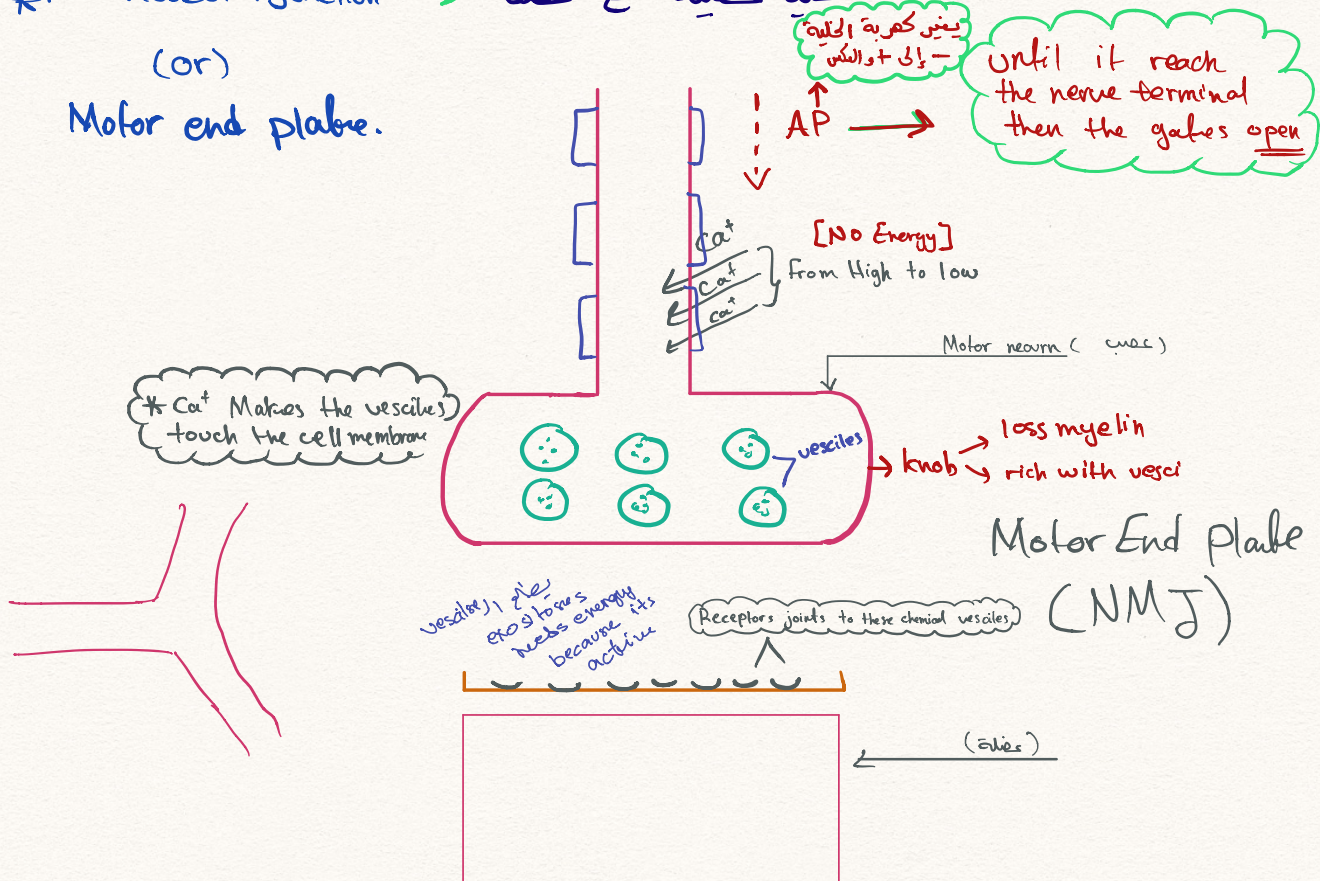 (or)
Motor end plate.
يغير كهربة الخلية
— إلى + والعكس
AP
until it reach
the nerve terminal
then the gates open
[No Energy]
from High to low
Ca⁺
Ca⁺
Ca⁺
Motor neurn (عصب)
* Ca⁺ Makes the vesciles
touch the cell membrane
vesciles
knob
loss myelin
rich with vesci
Motor End plate
(NMJ)
exositoses
needs energy
because its
active
Receptors joints to these chemical vesciles
(عضلة)